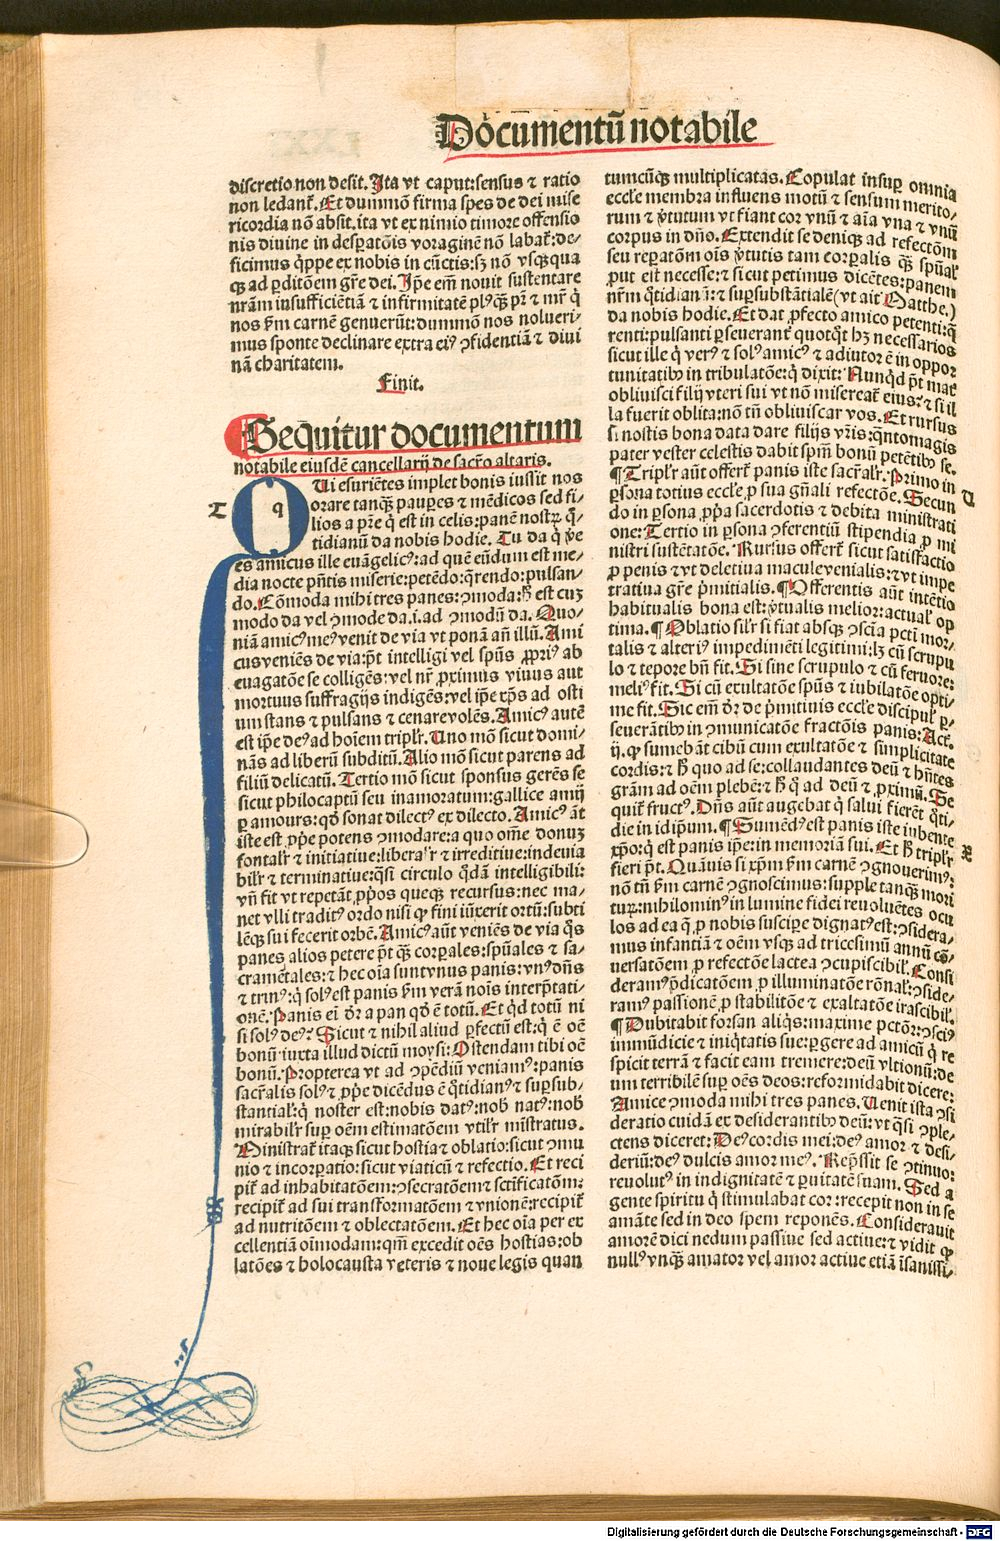 Documentū notabile
discretio non desit. Ita vt caput: sensus ⁊ ratio
non ledant᷑. Et dummō firma spes de dei mise
ricordia nō absit. ita vt ex nimio timore offensio
nis diuine in desꝑatōis voraginē nō labat᷑: de⸗
ficimus q̇ppe ex nobis in cūctis: sꝫ nō vsq̨qua
q̨ ad ꝑditōem gr̄e dei. Ip̄e em̄ nouit sustentare
nr̄am insufficiētiā ⁊ infirmitatē plꝰq̨ pr̄ ⁊ mr̄ q̇
nos ẜm carnē genuerūt: dummō nos nolueri⸗
mus sponte declinare extra eiꝰ ↄfidentiā ⁊ diui
nā charitatem.
Finit.
Seq̄uitur documentum
notabile eiusdē cancellarij de sacr̄o altaris.
T
q
QVi esuriētes implet bonis iussit nos
orare tanq̨ pauꝑes ⁊ mēdicos sed fi⸗
lios a pr̄e q̇ est in celis: panē nostꝝ q̄⸗
tidianū da nobis hodie. Tu da q̇ ꝟe
es amicus ille euāgelicꝰ: ad quē eūdum est me⸗
dia nocte pn̄tis miserie: petēdo: q̄rendo: pulsan⸗
do. Cōmoda mihi tres panes: ↄmoda: ħ est cuꝫ
modo da vel ↄmode da. i. ad ↄmodū da. Quo⸗
niā amicꝰ meꝰ venit de via vt ponā an̄ illū. Ami
cus veniēs de via: pt̄ intelligi vel spūs ꝓpriꝰ ab
euagatōe se colligēs: vel nr̄ ꝓximus viuus aut
mortuus suffragijs indigēs: vel ip̄e xp̄s ad osti
um stans ⁊ pulsans ⁊ cenare volēs. Amicꝰ autē
est ip̄e deꝰ ad hoīem tripl᷑r. Uno mō sicut domi⸗
nās ad liberū subditū. Alio mō sicut parens ad
filiū delicatū. Tertio mō sicut sponsus gerēs se
sicut philocaptū seu inamoratum: gallice amij
ꝑ amours: qđ sonat dilectꝰ ex dilecto. Amicꝰ āt
iste est ꝓp̄e potens ↄmodare: a quo om̄e donuꝫ
fontal᷑r ⁊ initiatiue: libera᷑lr ⁊ irreditiue: indeuia
bil᷑r ⁊ terminatiue: q̇si circulo q̇dā intelligibili:
vn̄ fit vt repetāt ꝓp̄os queq̨ recursus: nec ma⸗
net vlli traditꝰ ordo nisi ꝙ fini iūxerit ortū: subti
lēq̨ sui fecerit orbē. Amicꝰ aūt veniēs de via q̇s
panes alios petere pt̄ q̨̄ corꝑales: spūales ⁊ sa⸗
cramētales: ⁊ hec oīa sunt vnus panis: vnꝰ dn̄s
⁊ trinꝰ: q̇ solꝰ est panis ẜm verā nois interp̄tati⸗
onē. Panis ei᷑ dr̄ a pan qđ ē totū. Et q̇d totū ni
si solꝰ deꝰ? Sicut ⁊ nihil aliud ꝑfectū est: q̇ ē oē
bonū iuxta illud dictū moysi: Ostendam tibi oē
bonū. Propterea vt ad ↄpēdiū veniamꝰ: panis
sacr̄alis solꝰ ⁊ ꝓp̄e dicēdus ē q̄tidianꝰ ⁊ suꝑsub⸗
stantial᷑: q̇ noster est: nobis datꝰ: nob᷑ natꝰ: nob᷑
mirabil᷑r suꝑ oēm estimatōem vtil᷑r mīstratus.
Ministrat᷑ itaq̨ sicut hostia ⁊ oblatio: sicut ↄmu
nio ⁊ incorꝑatio: sicut viaticū ⁊ refectio. Et reci
pit᷑ ad inhabitatōem: ↄsecratōem ⁊ sctificatōm:
recipit᷑ ad sui transformatōem ⁊ vnionē: recipit᷑
ad nutritōem ⁊ oblectatōem. Et hec oīa per ex
cellentiā oīmodam: qm̄ excedit oēs hostias: ob
latōes ⁊ holocausta veteris ⁊ noue legis quan
tumcūq̨ multiplicatas. Copulat insuꝑ omnia
eccl̄e membra influens motū ⁊ sensum merito⸗
rum ⁊ ꝟtutum vt fiant cor vnū ⁊ aīa vna ⁊ vnū
corpus in dn̄o. Extendit se deniq̨ ad refectōm
seu reꝑatōm oīs ꝟtutis tam corꝑalis q̨̄ spūal᷑
ꝓut est necesse: ⁊ sicut petimus dicētes: panem
nr̄m q̄tidianū: ⁊ suꝑsubstātialē (vt ait Matthe.)
da nobis hodie. Et dat ꝓfecto amico petenti: q̄
renti: pulsanti ꝑseuerant᷑ quotq̇t hꝫ necessarios
sicut ille q̇ verꝰ ⁊ solꝰ amicꝰ ⁊ adiutor ē in oppor
tunitatibꝰ in tribulatōe: q̇ dixit: Nunq̇d pt̄ mar̄
obliuisci filij vteri sui vt nō misereat᷑ eius: ⁊ si il
la fuerit oblita: nō tn̄ obliuiscar vos. Et rursus
si nostis bona data dare filijs vr̄is: q̄ntomagis
pater vester celestis dabit spm̄ bonū petētibꝰ se.
¶ Tripl᷑r aūt offert᷑ panis iste sacr̄al᷑r. Primo in
V
ꝑsona totius eccl̄e ꝓ sua gn̄ali refectōe. Secun
do in ꝑsona ꝓp̄a sacerdotis ⁊ debita ministrati
one: Tertio in ꝑsona ↄferentiū stipendia ꝓ mi
nistri sustētatōe. Rursus offert᷑ sicut satisfactio
ꝓ penis ⁊ vt deletiua macule venialis: ⁊ vt impe
tratiua gr̄e p̄mitialis. ¶ Offerentis aūt intētio
habitualis bona est: ꝟtualis melior: actual᷑ op
tima. ¶ Oblatio sil᷑r si fiat absq̨ ↄscīa pctī mor⸗
talis ⁊ alteriꝰ impedimēti legitimi: lꝫ cū scrupu
lo ⁊ tepore bn̄ fit. Si sine scrupulo ⁊ cū feruore:
meliꝰ fit. Si cū exultatōe spūs ⁊ iubilatōe opti⸗
me fit. Sic em̄ dr̄ de p̄mitiuis eccl̄e discipul᷑ ꝑ⸗
seuerātibꝰ in ↄmunicatōe fractōis panis: Act.
ij. ꝙ sumebāt cibū cum exultatōe ⁊ simplicitate
cordis: ⁊ ħ quo ad se: collaudantes deū ⁊ hn̄tes
gr̄am ad oēm plebē: ⁊ ħ q̇ ad deū ⁊ ꝓximū. Se
quit᷑ fructꝰ. Dn̄s aūt augebat q̇ salui fierēt q̄ti⸗
die in idip̄m. ¶ Sumēdꝰ est panis iste iubente
X
xp̄o: q̇ est panis ip̄e: in memoriā sui. Et ħ tripl᷑r
fieri pt̄. Quāuis si xp̄m ẜm carnē ↄgnouerimꝰ:
nō tn̄ ẜm carnē ↄgnoscimus: supple tanq̨ mori
turꝫ: nihilominꝰ in lumine fidei reuoluētes ocu
los ad ea q̄ ꝓ nobis susciꝑe dignatꝰ est: ↄsidera⸗
mus infantiā ⁊ oēm vsq̨ ad tricesimū annū cō⸗
uersatōem ꝓ refectōe lactea ↄcupiscibil᷑. Consi
deramꝰ p̄dicatōem ꝓ illuminatōe rōnal᷑: ↄside⸗
ramꝰ passionē ꝓ stabilitōe ⁊ exaltatōe irascibil᷑.
¶ Dubitabit forsan aliq̇s: maxime pctōr: ↄsciꝰ
immūdicie ⁊ iniq̇tatis sue: ꝑgere ad amicū q̇ re
spicit terrā ⁊ facit eam tremere: deū vltionū: de
um terribilē suꝑ oēs deos: reformidabit dicere:
Amice ↄmoda mihi tres panes. Uenit ista ↄsi
deratio cuidā ex desiderantibꝰ deū: vt q̇si ↄple⸗
ctens diceret: Deꝰ cordis mei: deꝰ amor ⁊ desi⸗
deriū: deꝰ dulcis amor meꝰ. Rep̄ssit se ↄtinuo:
reuolutꝰ in indignitatē ⁊ ꝑuitatē suam. Sed a
gente spiritu q̇ stimulabat cor: recepit non in se
amāte sed in deo spem reponēs. Considerauit
amorē dici nedum passiue sed actiue: ⁊ vidit ꝙ
nullꝰ vnq̨ amator vel amor actiue etiā īsanissi⸗
Digitalisierung gefördert durch die Deutsche Forschungsgemeinschaft - DFG